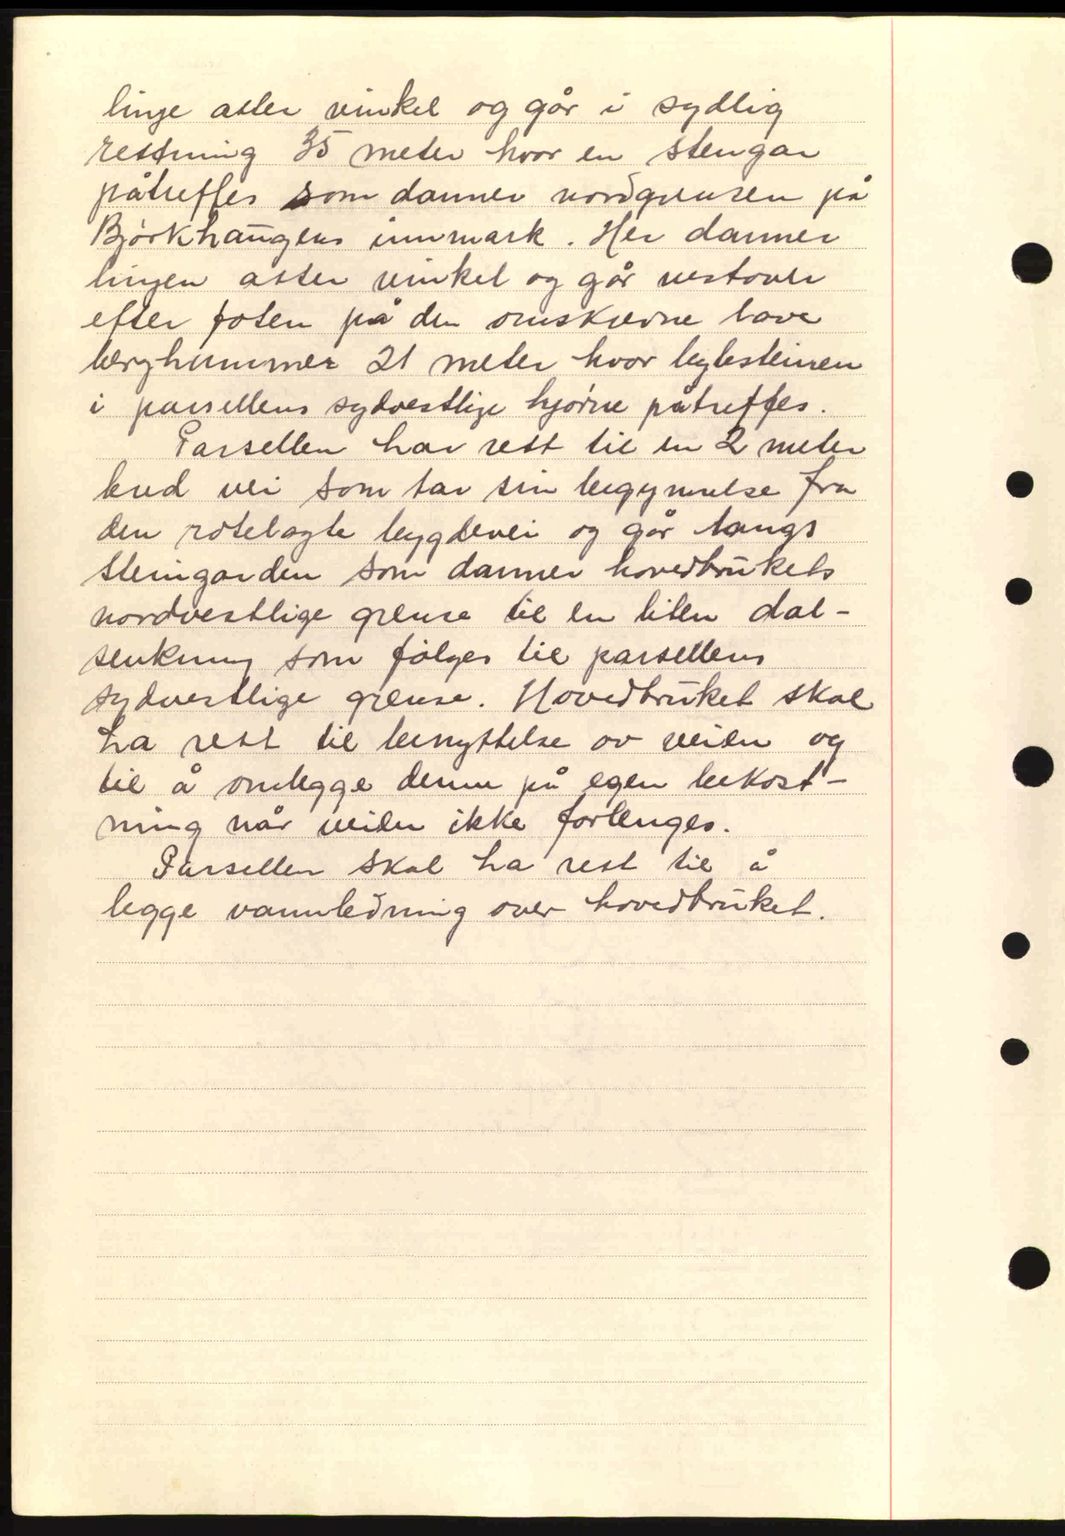 linje atter vinkel og går i sydlig
rettning 35 meter hvor en stengar
påtreffes som danner nordgrensen på
Bjørkhaugens innmark. Her danner
linjen atter vinkel og går vestover
efter foten på den omskrevne lave
berghammer 21 meter hvor bytesteinen
i parsellens sydvestlige hjørne påtreffes.
Parsellen har rett til en 2 meter
bred vei som tar sin begynnelse fra
den rodelagte bygdevei og går langs
steingarden som danner hovedbrukets
nordvestlige grense til en liten dal-
senkning som følges til parsellens
sydvestlige grense. Hovedbruket skal
ha rett til benyttelse av veien og
til å omlegge denne på egen bekost-
ning når veien ikke forlenges.
Parsellen skal ha rett til å
legge vannledning over hovedbruket.